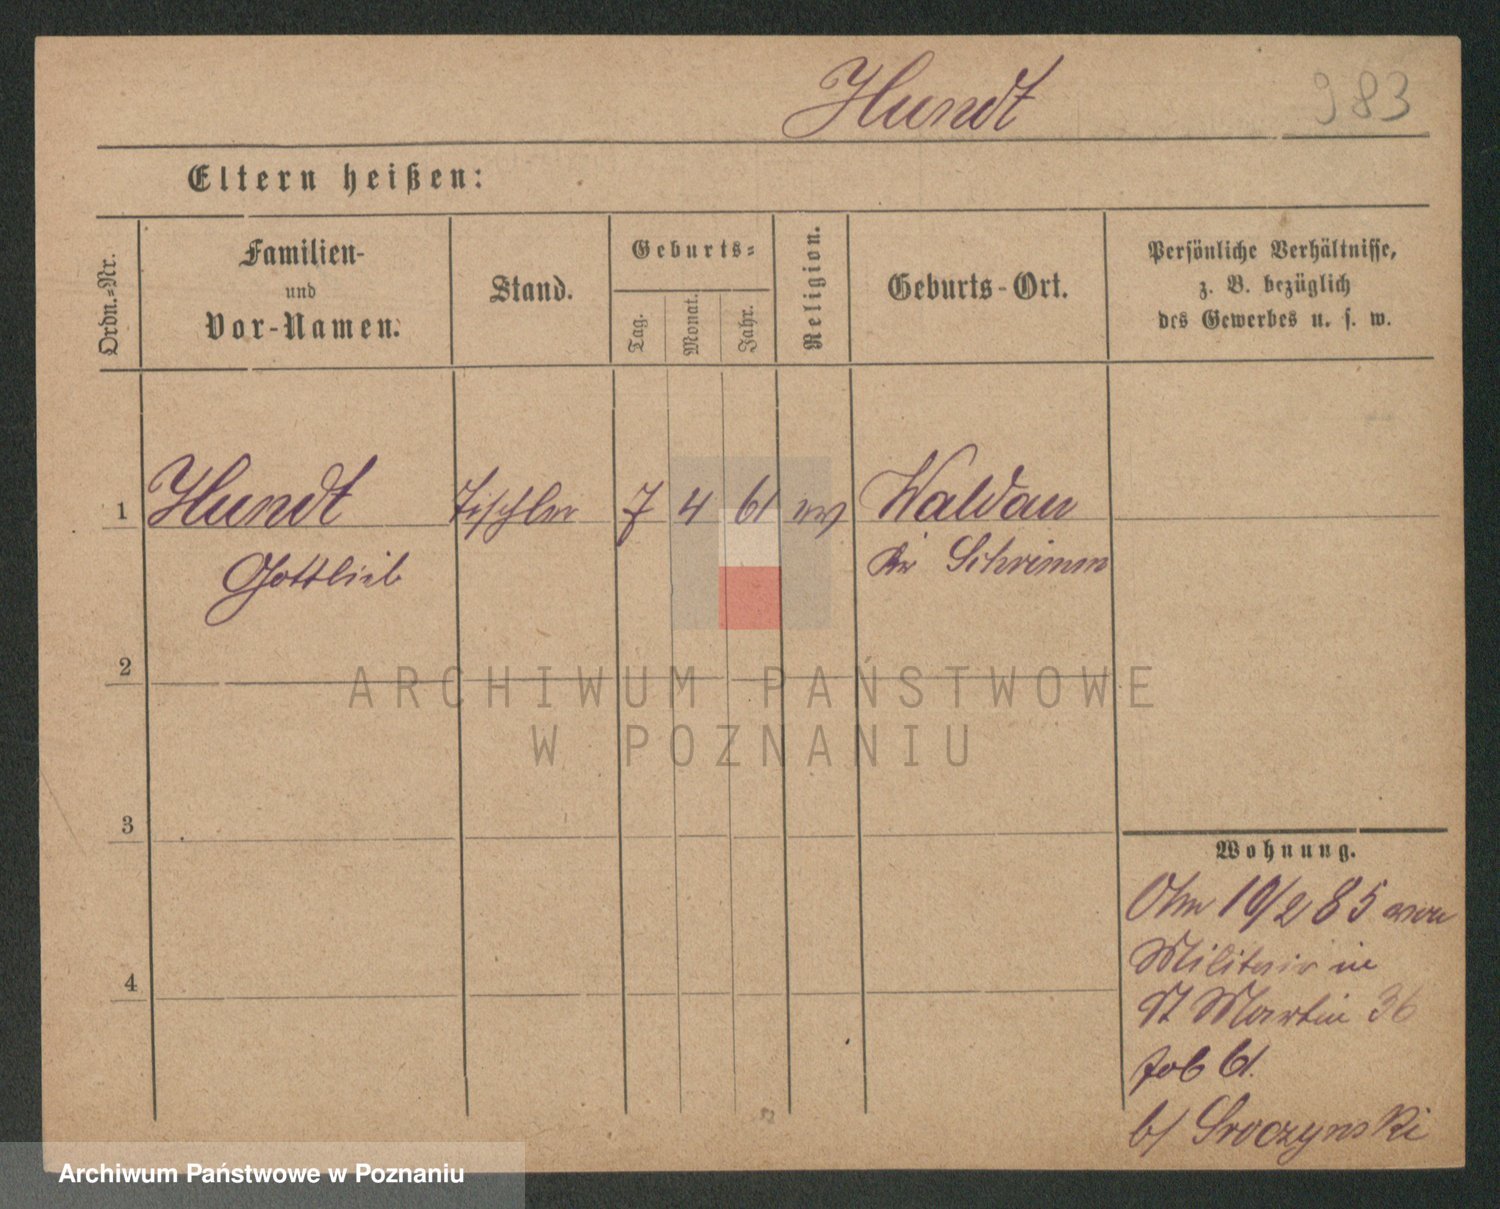 Hundt 983
Eltern heißen:
Ordn.-Nr.
Familien-
und
Vor-Namen.
Stand.
Geburts-
Tag.
Monat.
Jahr.
Religion.
Geburts-Ort.
Persönliche Verhältnisse,
z. B. bezüglich
des Gewerbes u. s. w.
1 Hundt Tischler 7 4 61 ev Waldau
Gottlieb Kr Schrimm
2
3
4
Wohnung.
10/2 85
Militair in
St Martin 36
b/ Sroczynski
ARCHIWUM PAŃSTWOWE
W POZNANIU
Archiwum Państwowe w Poznaniu